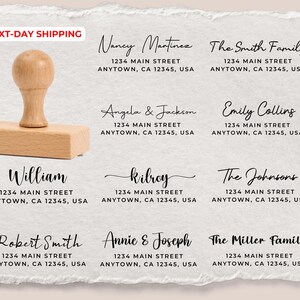 XT-DAY SHIPPING
Nancy Martinez
1234 MAIN STREET
ANYTOWN, CA 12345, USA
The Smith Famil
1234 MAIN STREET
ANYTOWN, CA 12345, USA
Angela & Jackson
1234 MAIN STREET
ANYTOWN, CA 12345, USA
Emily Collins
1234 MAIN STREET
ANYTOWN, CA 12345, USA
William
1234 MAIN STREET
ANYTOWN, CA 12345, USA
Kilroy
1234 MAIN STREET
ANYTOWN, CA 12345, USA
The Johnsons
1234 MAIN STREET
ANYTOWN, CA 12345, USA
Robert Smith
1234 MAIN STREET
ANYTOWN, CA 12345, USA
Annie & Joseph
1234 MAIN STREET
ANYTOWN, CA 12345, USA
The Miller Famil
1234 MAIN STREET
ANYTOWN, CA 12345, USA